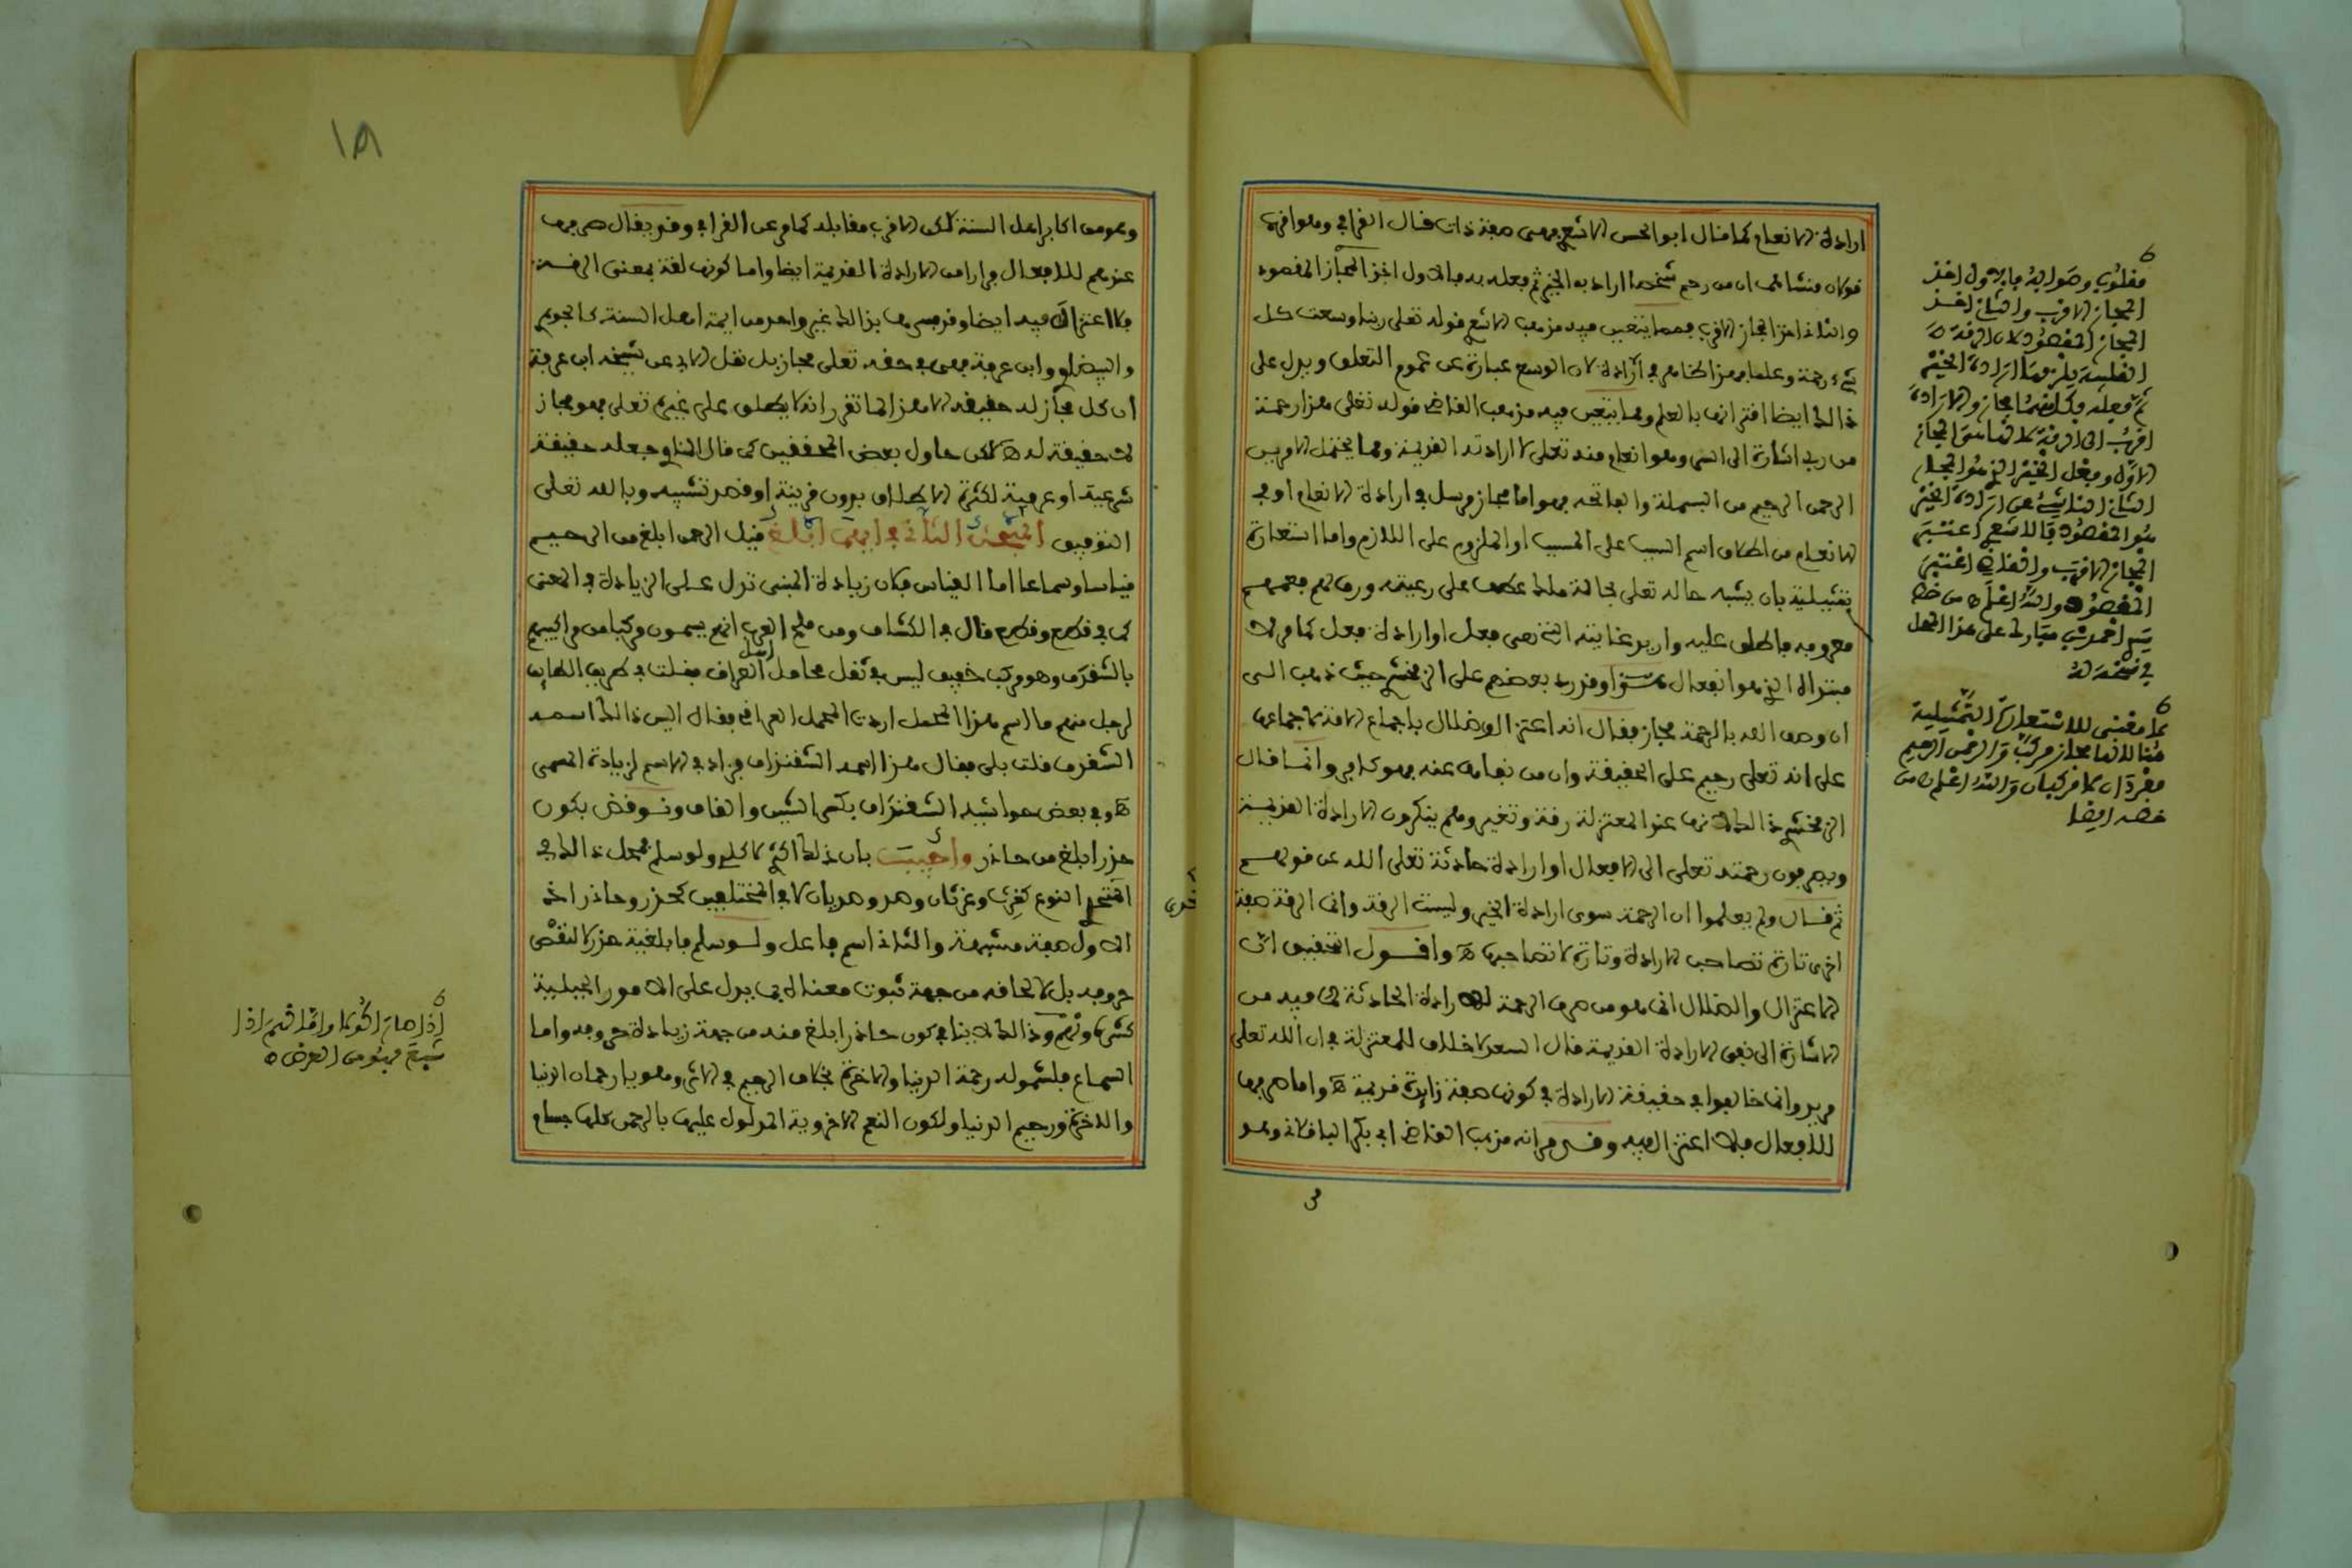 ارادة الانعام كما قال ابو الحسن الاشعري فهي صفة ذات قال القرافي وهو اقرب
قولان منشاهما ان من رحم شخصا اراد به الخير ثم فعله به فالاول اخذ المجاز المقصود
والثاني اخذ المجاز الاقرب فمما يتعين فيه مذهب الاشعري قوله تعلى ربنا وسعت كل
شيء رحمة وعلما فهذا ظاهر في الارادة لان الوسع عبارة عن عموم التعلق ويدل على
ذالك ايضا اقترانها بالعلم ومما يتعين فيه مذهب القاضي قوله تعلى هذا رحمة
من ربي اشارة الى السد وهو انعام منه تعلى لا ارادته القديمة ومما يحتمل الامرين
الرحمن الرحيم من البسملة والفاتحة فهو اما مجاز مرسل في ارادة الانعام او في
الانعام من اطلاق اسم السبب على المسبب او الملزوم على اللازم واما استعارة
تمثيلية بان يشبه حاله تعلى بحالة ملك عطف على رعيته ورق لهم فعمهم
معروفه فاطلق عليه واريد غايته التي هي فعل او ارادة فعل كما مر لا
مبدأه الذي هو انفعال وقد رد بعضهم على الزمخشري حيث ذهب الى
ان وصف الله بالرحمة مجاز فقال انه اعتزال وضلال باجماع الامة لاجماعها
على انه تعلى رحيم على الحقيقة وان من نفاه عنه فهو كافر وانما قال
الزمخشري ذالك لانها عند المعتزلة رقة وتغير وهم ينكرون الارادة القديمة
ويصرفون رحمته تعلى الى الافعال او ارادة حادثة تعلى الله عن قولهم
ثم قال ولم يعلموا ان الرحمة سوى ارادة الخير وليست الرقة وانما الرقة صفة
اخرى تارة تصاحب الارادة وتارة لا تصاحبها ه واقول التحقيق ان
الاعتزال والضلال انما هو من صرف الرحمة للارادة الحادثة لما فيه من
الاشارة الى نفي الارادة القديمة قال السعد لا خلاف للمعتزلة في ان الله تعلى
مريد وانما خالفوا في حقيقة الارادة في كونها صفة زايدة قديمة ه واما صرفها
للافعال فلا اعتزال فيه وقد مر انه مذهب القاضي ابي بكر الباقلاني وهو
مقلوب وصوابه فالاول اخذ
المجاز الاقرب والثاني اخذ
المجاز المقصود لان الرقة
القلبية يلزمها ارادة الخير
ثم فعله فكل منهما مجاز والارادة
اقرب الى الرقة لانها من المجاز
الاول وفعل الخير الذي هو المجاز
الثاني الناشئ عن ارادة الخير
هو المقصود فالاشعري اعتبر
المجاز الاقرب والقاضي اعتبر
المقصود والله اعلم ه من خط
سيد احمد بن مبارك على هذا المحل
في نسخته
لا معنى للاستعارة التمثيلية
هنا لانها مجاز مركب والرحمن الرحيم
مفردان لا مركبان والله اعلم ه من
خطه ايضا
١٨
وهو من اكابر اهل السنة لكن الاقرب مقابله كما مر عن القرافي وقد يقال صرفها
عندهم للافعال فرارا من الارادة القديمة ايضا واما كونها لغة بمعنى الرقة
فلا اعتزال فيه ايضا وقد فسرها بذالك غير واحد من ايمة اهل السنة كالجوهري
والبيضاوي وابن عرفة فهي في حقه تعلى مجاز بل نقل الابي عن شيخه ابن عرفة
ان كل مجاز له حقيقة الا هذا لما تقرر انه لا يطلق على غيره تعلى فهو مجاز
لا حقيقة له ه لكن حاول بعض المحققين كما قال المناوي جعله حقيقة
شرعية او عرفية لكثرة الاطلاق بدون قرينة او قصد تشبيه وبالله تعلى
التوفيق المبحث الثاني في ايهما ابلغ قيل الرحمن ابلغ من الرحيم
قياسا وسماعا اما القياس فلان زيادة المبنى تدل على الزيادة في المعنى
كما في قطع وقطع قال في الكشاف ومن ملح العرب انهم يسمون مركبا من مراكبهم
بالشقدف وهو مركب خفيف ليس في ثقل محامل اهل العراق فقلت في طريق الطايف
لرجل منهم ما اسم هذا المحمل اردت المحمل العراقي فقال اليس ذالك اسمه
الشقدف قلت بلى فقال هذا اسمه الشقنداف فزاد في الاسم لزيادة المسمى
ه وفي بعض حواشيه الشقنداف بكسر الشين والقاف ونوقض بكون
حذر ابلغ من حاذر واجيب بان ذلك اكثري لا كلي ولو سلم فمحل ذالك في
المتحد النوع كغرث وغرثان وصد وصديان لا في المختلفين كحذر وحاذر اذ
الاول صفة مشبهة والثاني اسم فاعل ولو سلم فابلغية حذر لا لنقص
حروفه بل لالحاقه من جهة ثبوت معناه بما يدل على الامور الجبلية
كشره ونهم وذالك لا ينافي كون حاذر ابلغ منه من جهة زيادة حروفه واما
السماع فلشموله رحمة الدنيا والاخرة بخلاف الرحيم في الاثر وهو يا رحمان الدنيا
والاخرة ورحيم الدنيا ولكون النعم الاخروية المدلول عليها بالرحمن كلها جسام
اذا صار اكولا واما نهم اذا
شبع فهو من العرض ه